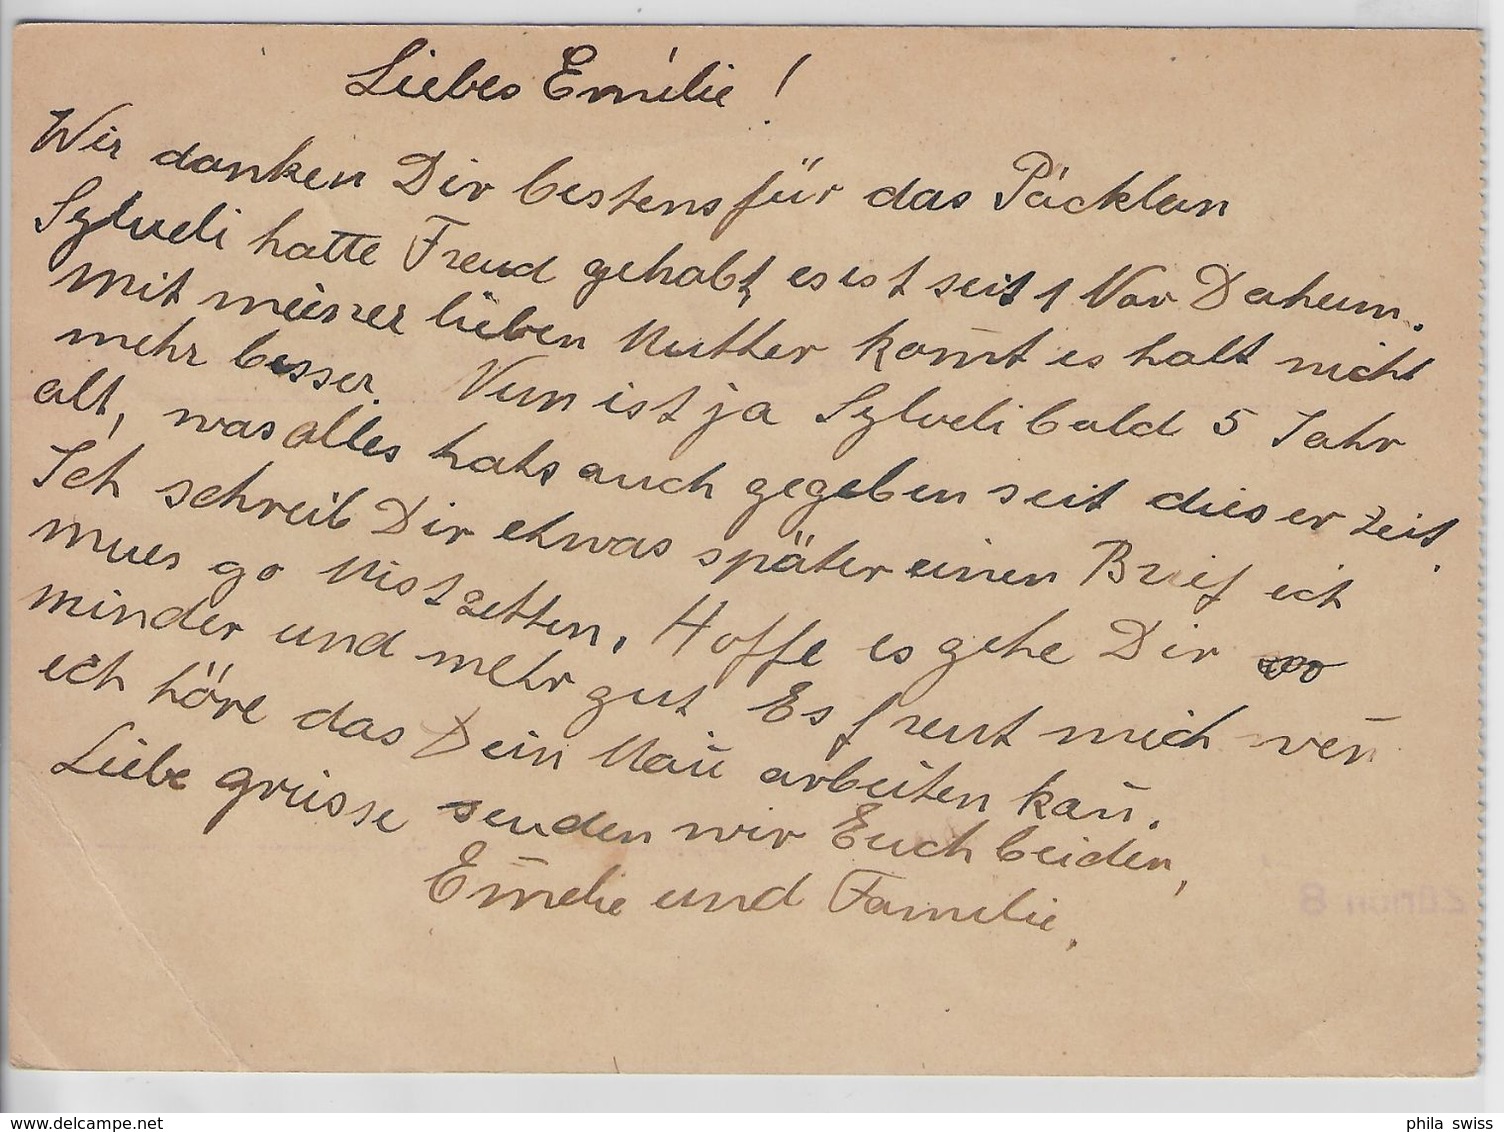 Liebes Emilie!
Wir danken Dir bestens für das Päcklein
Sylveli hatte Freud gehabt, es ist seit 1 Nov Daheim.
Mit meiner lieben Mutter kom̄t es halt nicht
mehr besser. Nun ist ja Sylveli bald 5 Jahr
alt, was alles hats auch gegeben seit dieser Zeit.
Ich schreib Dir etwas später einen Brief ich
mues go Mist zetten. Hoffe es gehe Dir
minder und mehr gut Es freut mich wen̄
ich höre das Dein Man̄ arbeiten kan̄.
Liebe grüsse senden wir Euch beiden,
Em̄elie und Familie.
Zürich 8
www.delcampe.net
phila_swiss